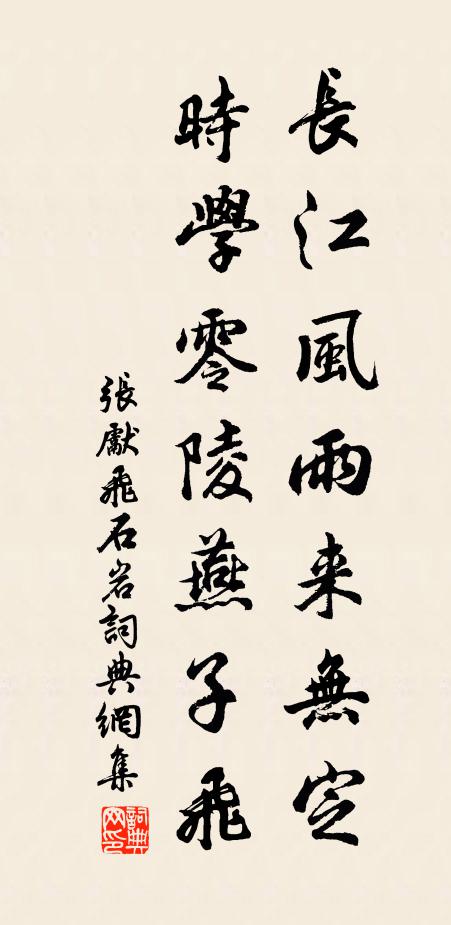 長江風雨来無定
時學零陵燕子飛
張獻飛石岩詞典網集
詞典網印